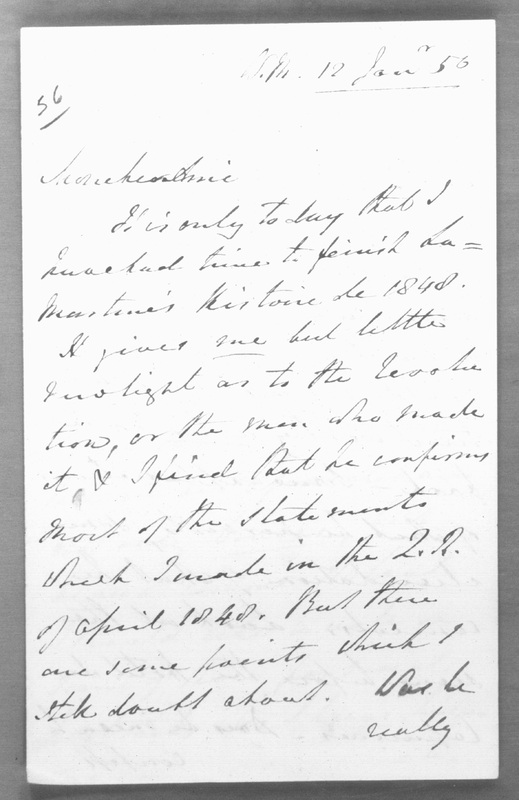 S.M. 12 Janr 50
56
Mon cher Amie
It is only to day that I
have had time to finish La=
martine's Histoire de 1848.
It gives me but little
new light as to the Revolu
tion, or the men who made
it, & I find that he confirms
most of the statements
which I made in the Q.R.
of April 1848. But there
are some points which I
still doubt about. Was he
really